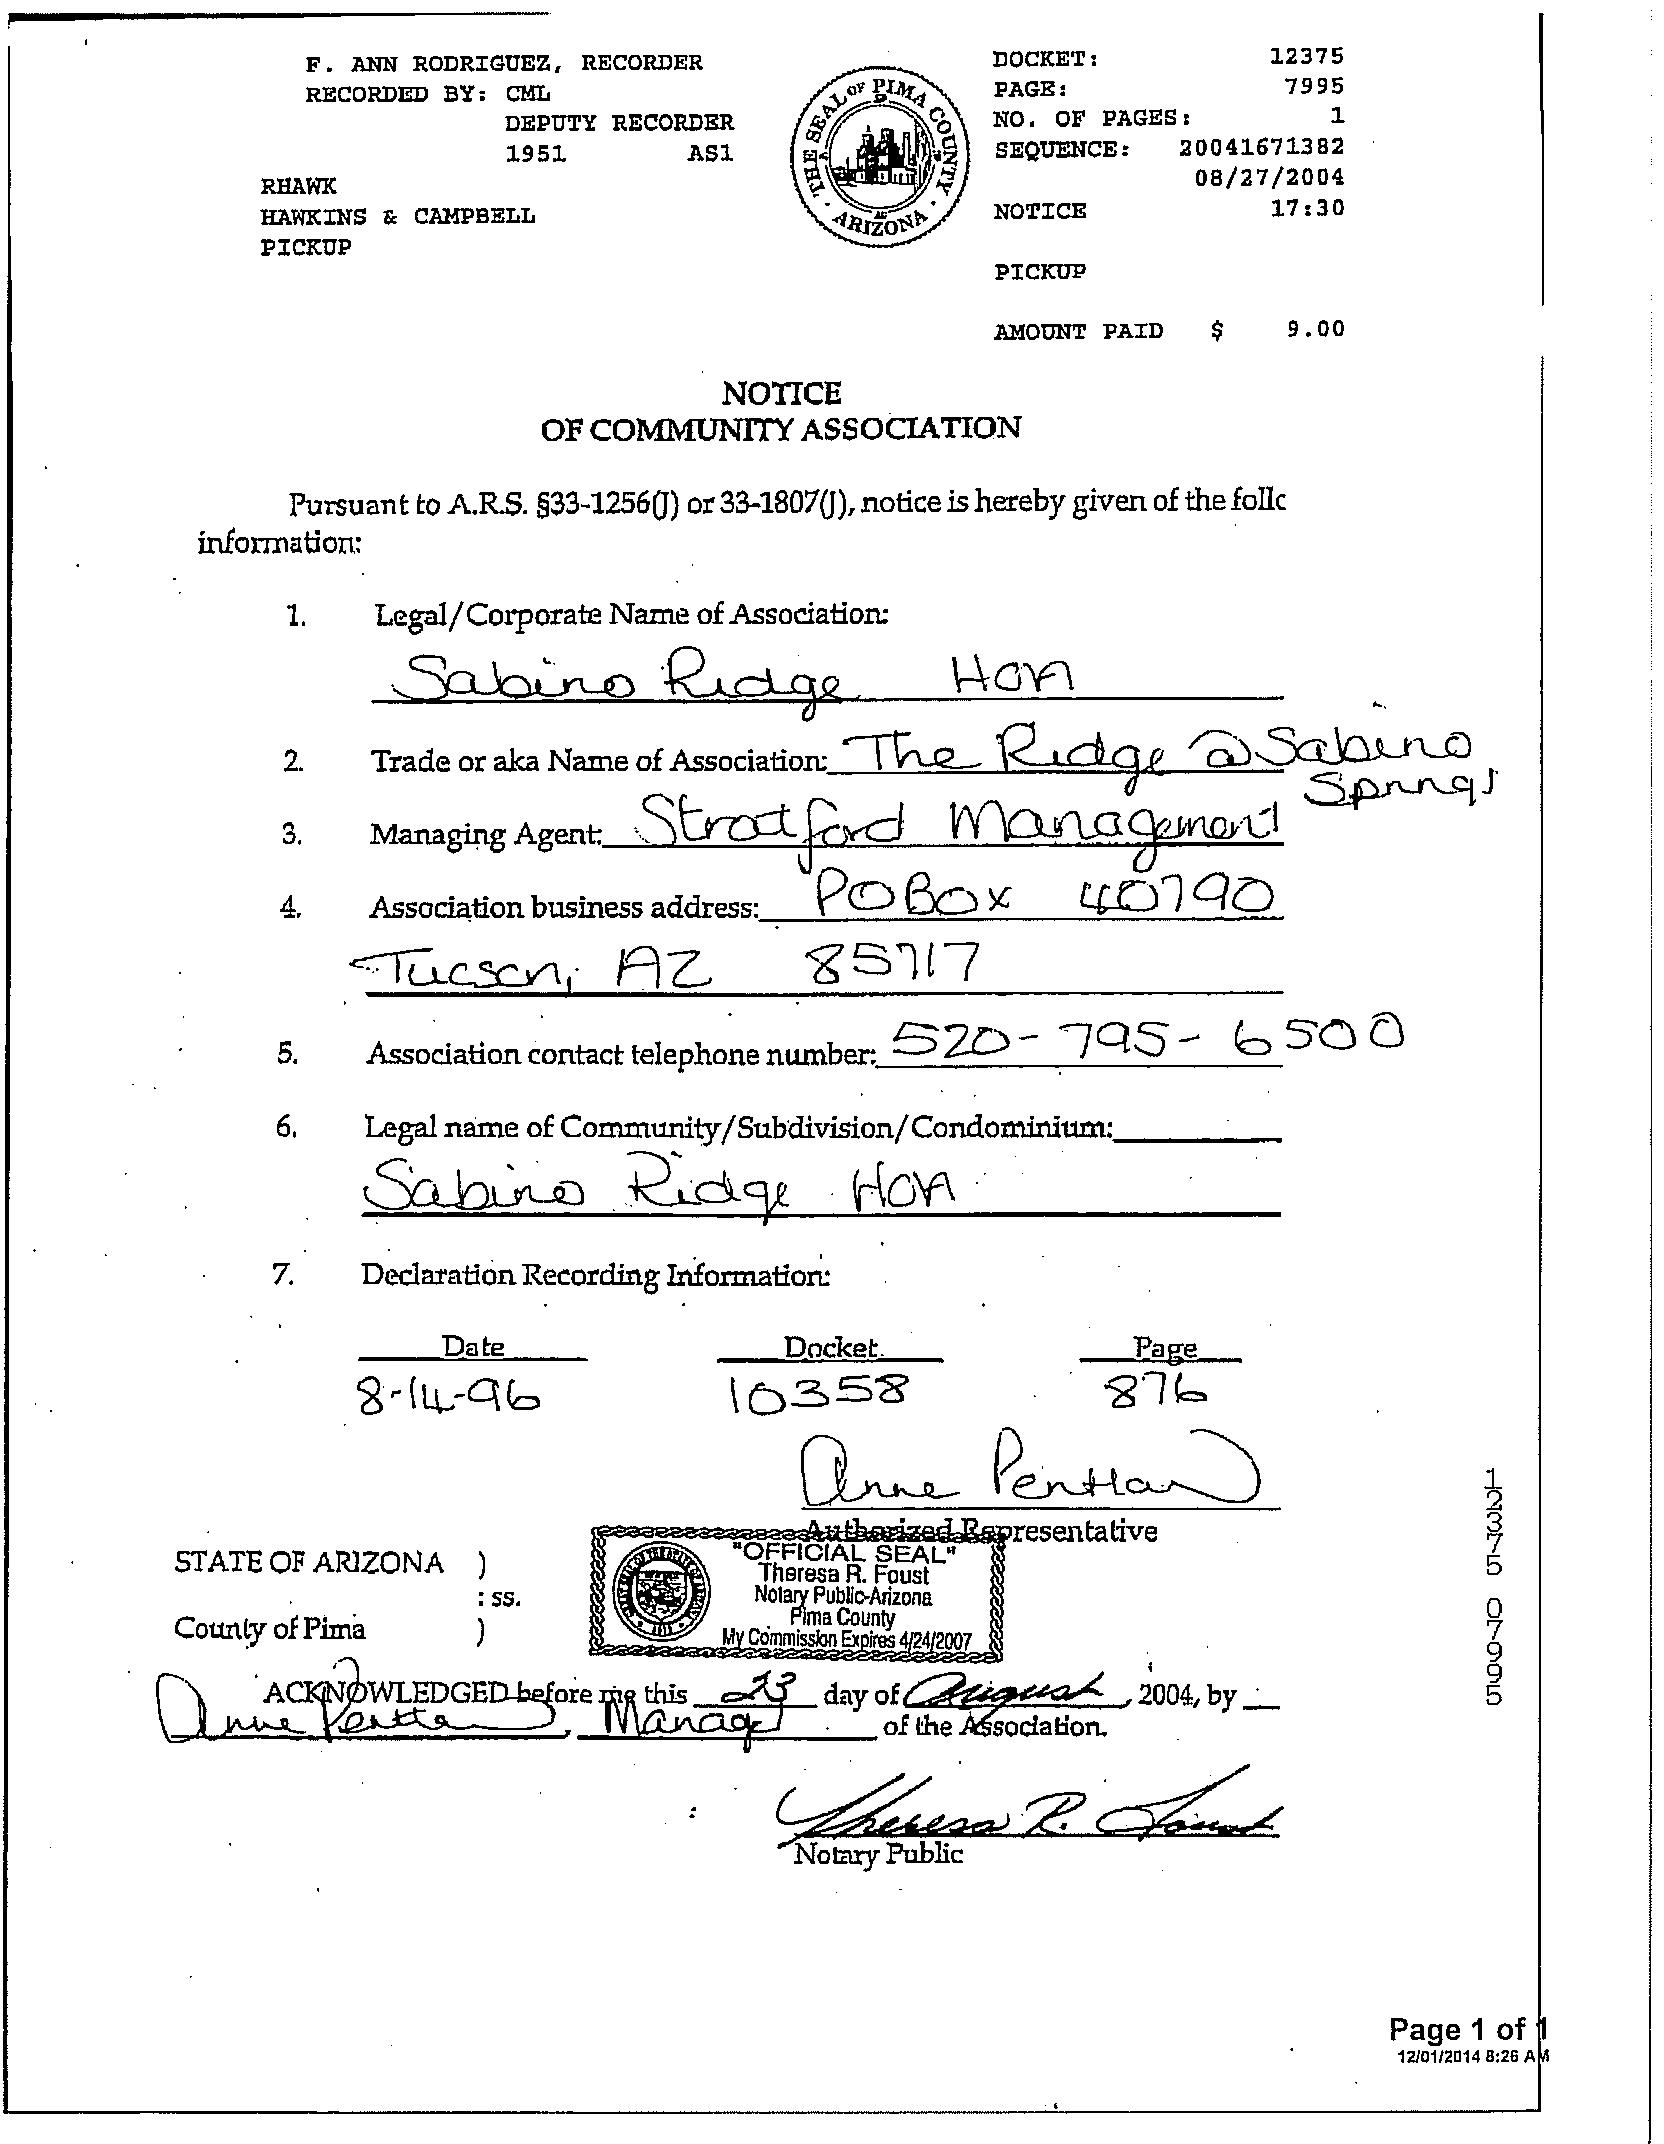 F. ANN RODRIGUEZ, RECORDER
RECORDED BY: CML
DEPUTY RECORDER
1951 AS1
RHAWK
HAWKINS & CAMPBELL
PICKUP
THE SEAL OF PIMA COUNTY
ARIZONA
DOCKET: 12375
PAGE: 7995
NO. OF PAGES: 1
SEQUENCE: 20041671382
08/27/2004
NOTICE 17:30
PICKUP
AMOUNT PAID $ 9.00
NOTICE
OF COMMUNITY ASSOCIATION
Pursuant to A.R.S. §33-1256(J) or 33-1807(J), notice is hereby given of the follc
information:
1. Legal/Corporate Name of Association:
Sabino Ridge HOA
2. Trade or aka Name of Association: The Ridge @ Sabino
Springs
3. Managing Agent: Stratford Management
4. Association business address: PO Box 40790
Tucson, AZ 85717
5. Association contact telephone number: 520-795-6500
6. Legal name of Community/Subdivision/Condominium:
Sabino Ridge HOA
7. Declaration Recording Information:
Date Docket Page
8-14-96 10358 876
Anne
Authorized Representative
STATE OF ARIZONA )
: ss.
County of Pima )
"OFFICIAL SEAL"
Theresa R. Foust
Notary Public-Arizona
Pima County
My Commission Expires 4/24/2007
ACKNOWLEDGED before me this 23 day of August, 2004, by
Anne , Manager of the Association.
Theresa R. Foust
Notary Public
12375 07995
Page 1 of 1
12/01/2014 8:26 AM